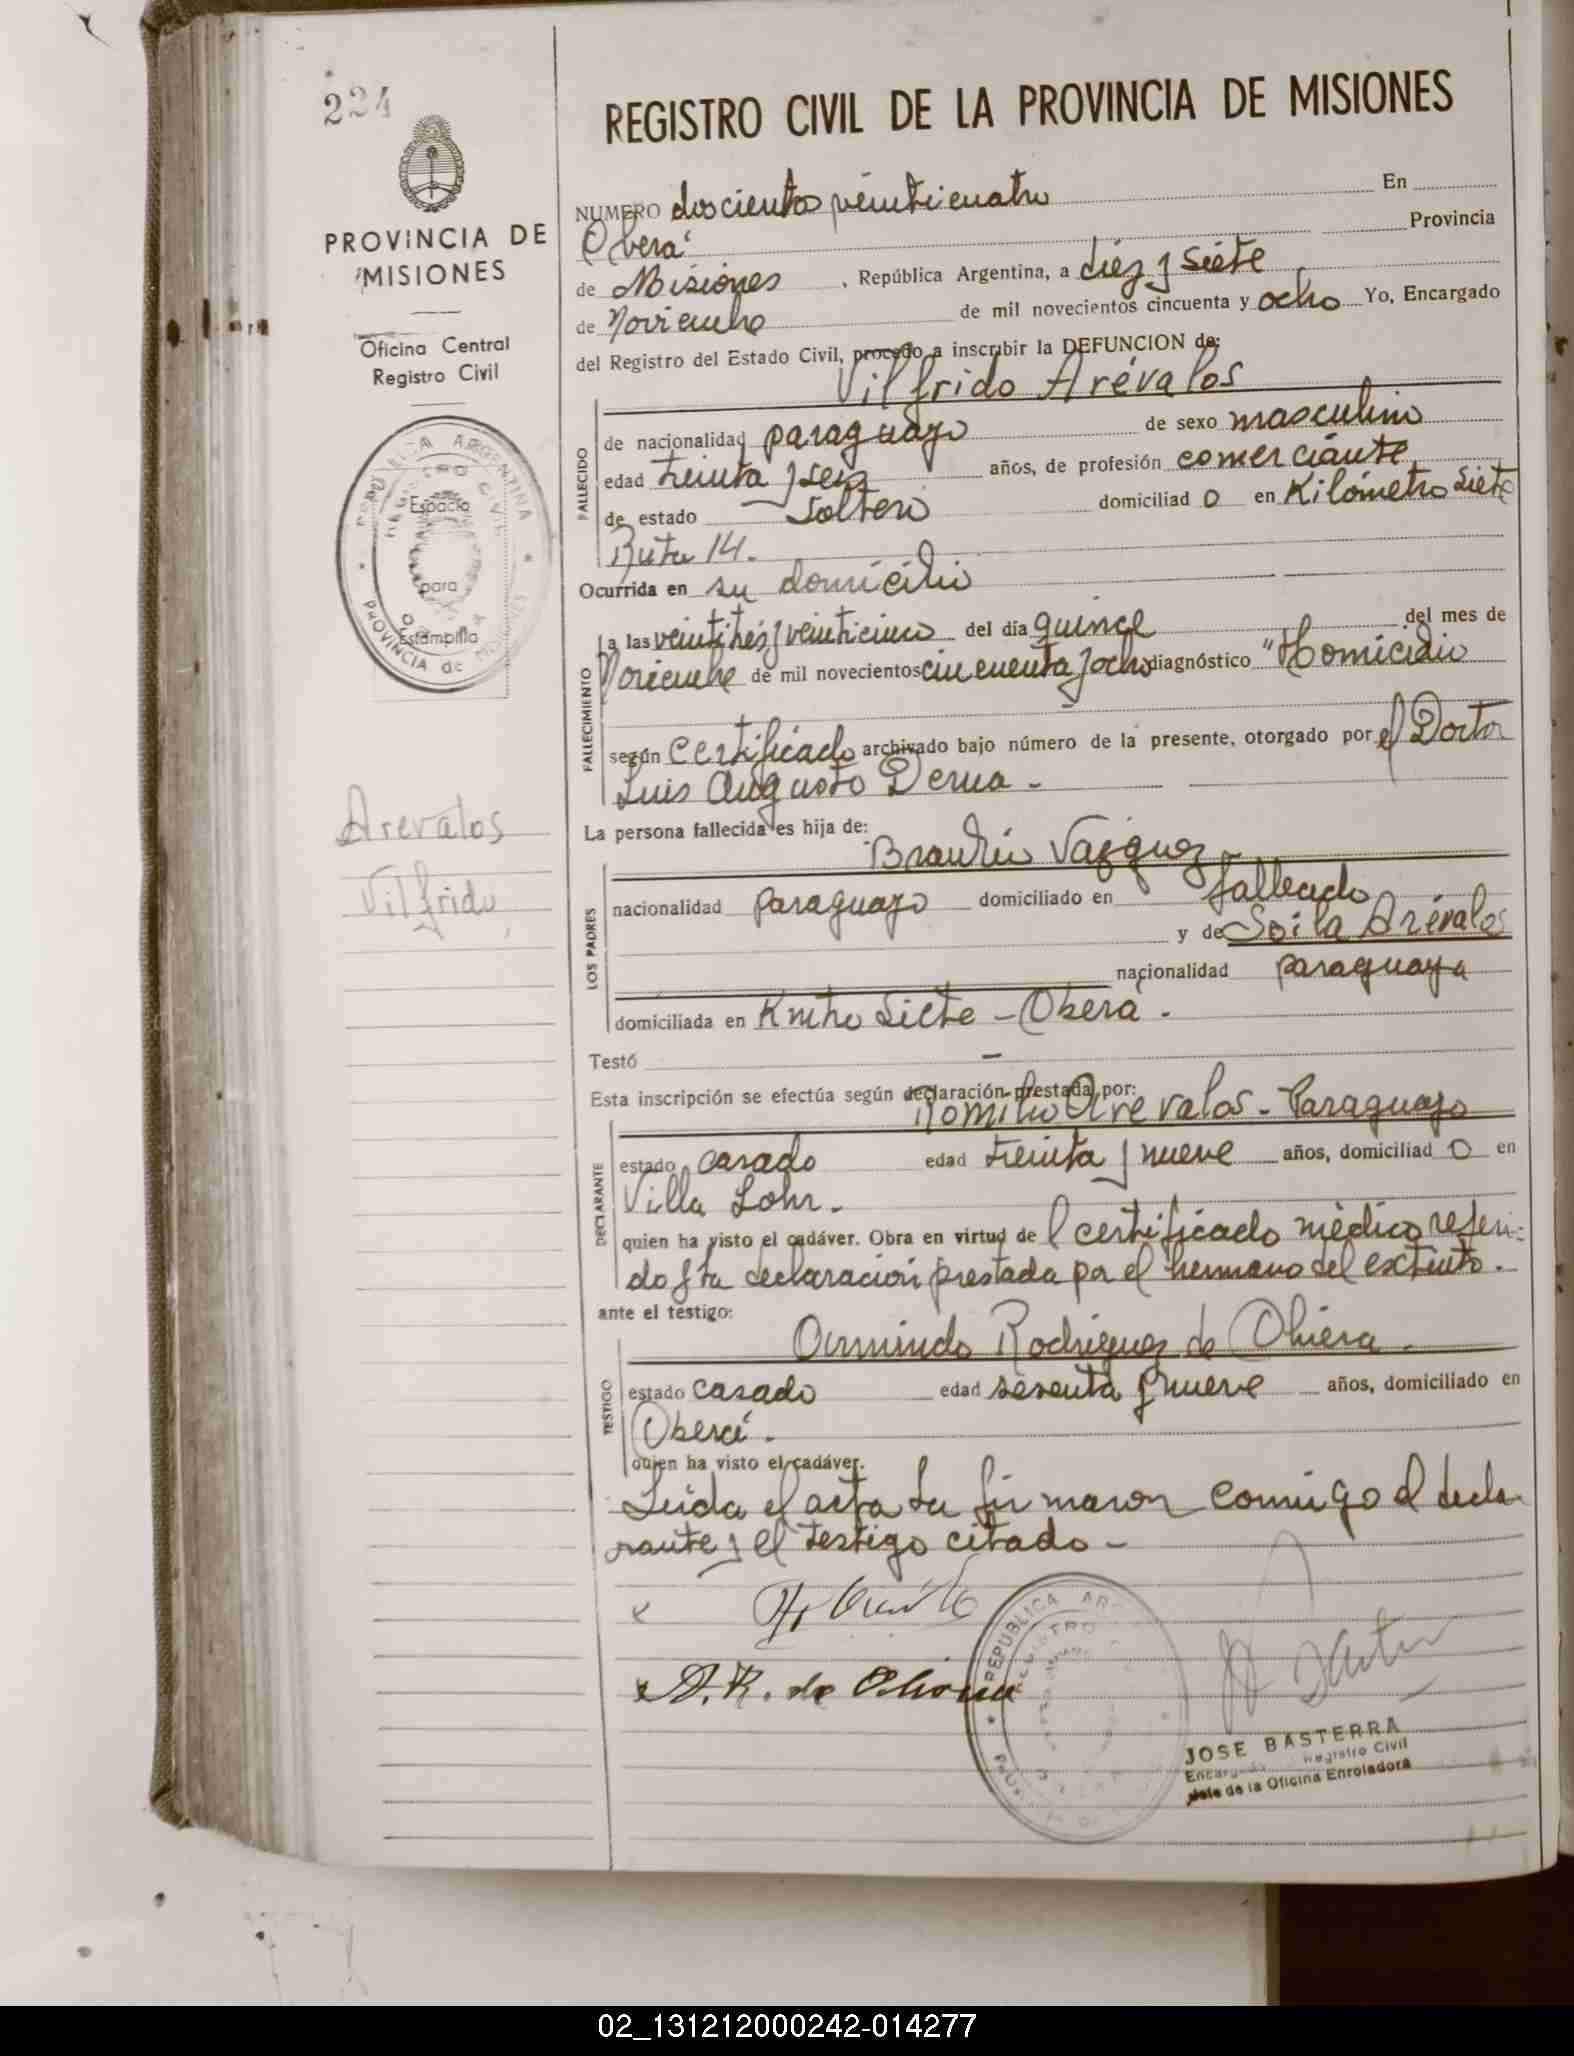 224
PROVINCIA DE
MISIONES
Oficina Central
Registro Civil
REPUBLICA ARGENTINA
REGISTRO CIVIL
PROVINCIA de MISIONES
Espacio
para
Estampilla
Arevalos
Vilfrido
REGISTRO CIVIL DE LA PROVINCIA DE MISIONES
NUMERO doscientos veinticuatro En
Oberá Provincia
de Misiones, República Argentina, a diez y siete
de Noviembre de mil novecientos cincuenta y ocho Yo, Encargado
del Registro del Estado Civil, procedo a inscribir la DEFUNCION de:
Vilfrido Arévalos
FALLECIDO
de nacionalidad paraguayo de sexo masculino
edad treinta y seis años, de profesión comerciante
de estado soltero domiciliad o en Kilómetro siete
Ruta 14.
Ocurrida en su domicilio
FALLECIMIENTO
a las veintitrés y veinticinco del día quince del mes de
Noviembre de mil novecientos cincuenta y ocho diagnóstico "Homicidio
según certificado archivado bajo número de la presente, otorgado por el Doctor
Luis Augusto Derna -
La persona fallecida es hija de:
Braulio Vazquez
LOS PADRES
nacionalidad paraguayo domiciliado en fallecido
y de Soila Arévalos
nacionalidad paraguaya
domiciliada en Kmtro Siete - Oberá.
Testó -
Esta inscripción se efectúa según declaración prestada por:
Romilio Arevalos - Paraguayo
DECLARANTE
estado casado edad treinta y nueve años, domiciliad o en
Villa Lohr.
quien ha visto el cadáver. Obra en virtud de l certificado médico referi-
do y la declaración prestada por el hermano del extinto.
ante el testigo:
Armindo Rodriguez de Oliviera.
TESTIGO
estado casado edad sesenta y nueve años, domiciliado en
Oberá.
quien ha visto el cadáver.
Leida el acta la firmaron conmigo el decla
rante y el testigo citado -
A. R. de
REPUBLICA
JOSE BASTERRA
Registro Civil
Jefe de la Oficina Enroladora
02_131212000242-014277